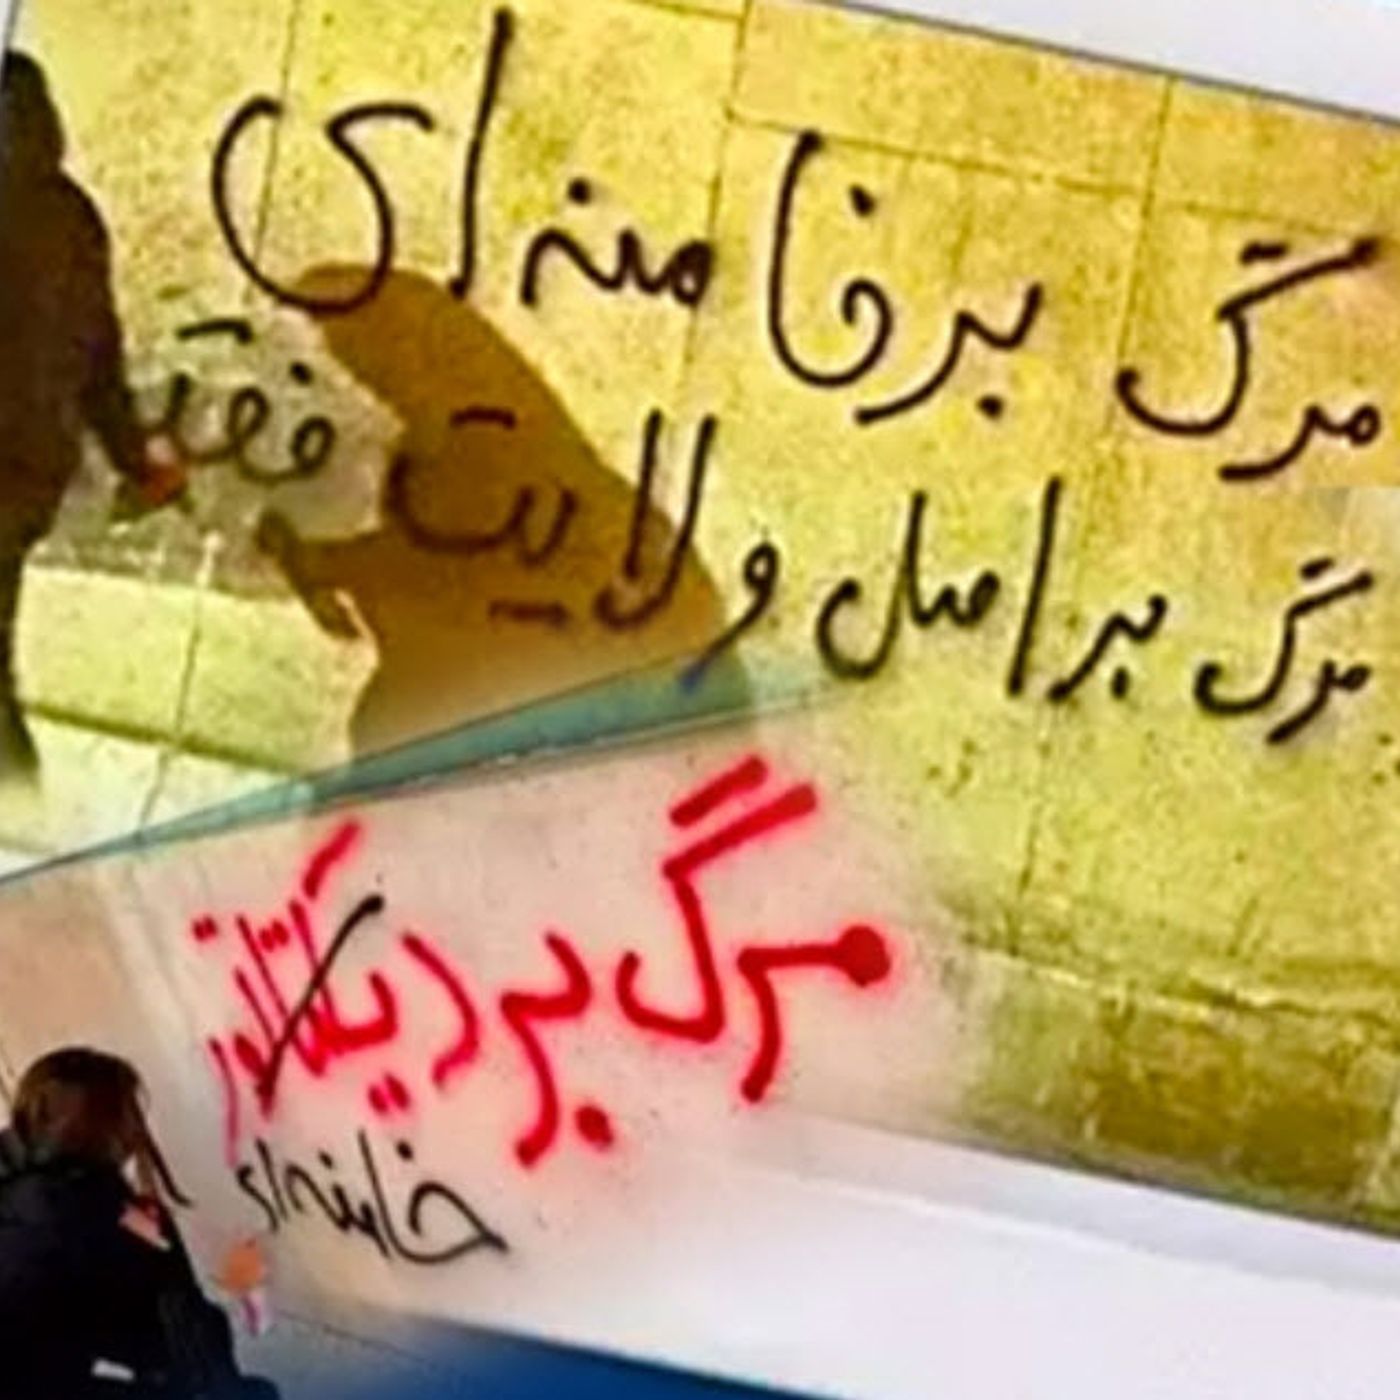 مرگ بر خامنه ای
مرگ بر اصل ولایت فقیه
مرگ بر دیکتاتور
خامنه ای